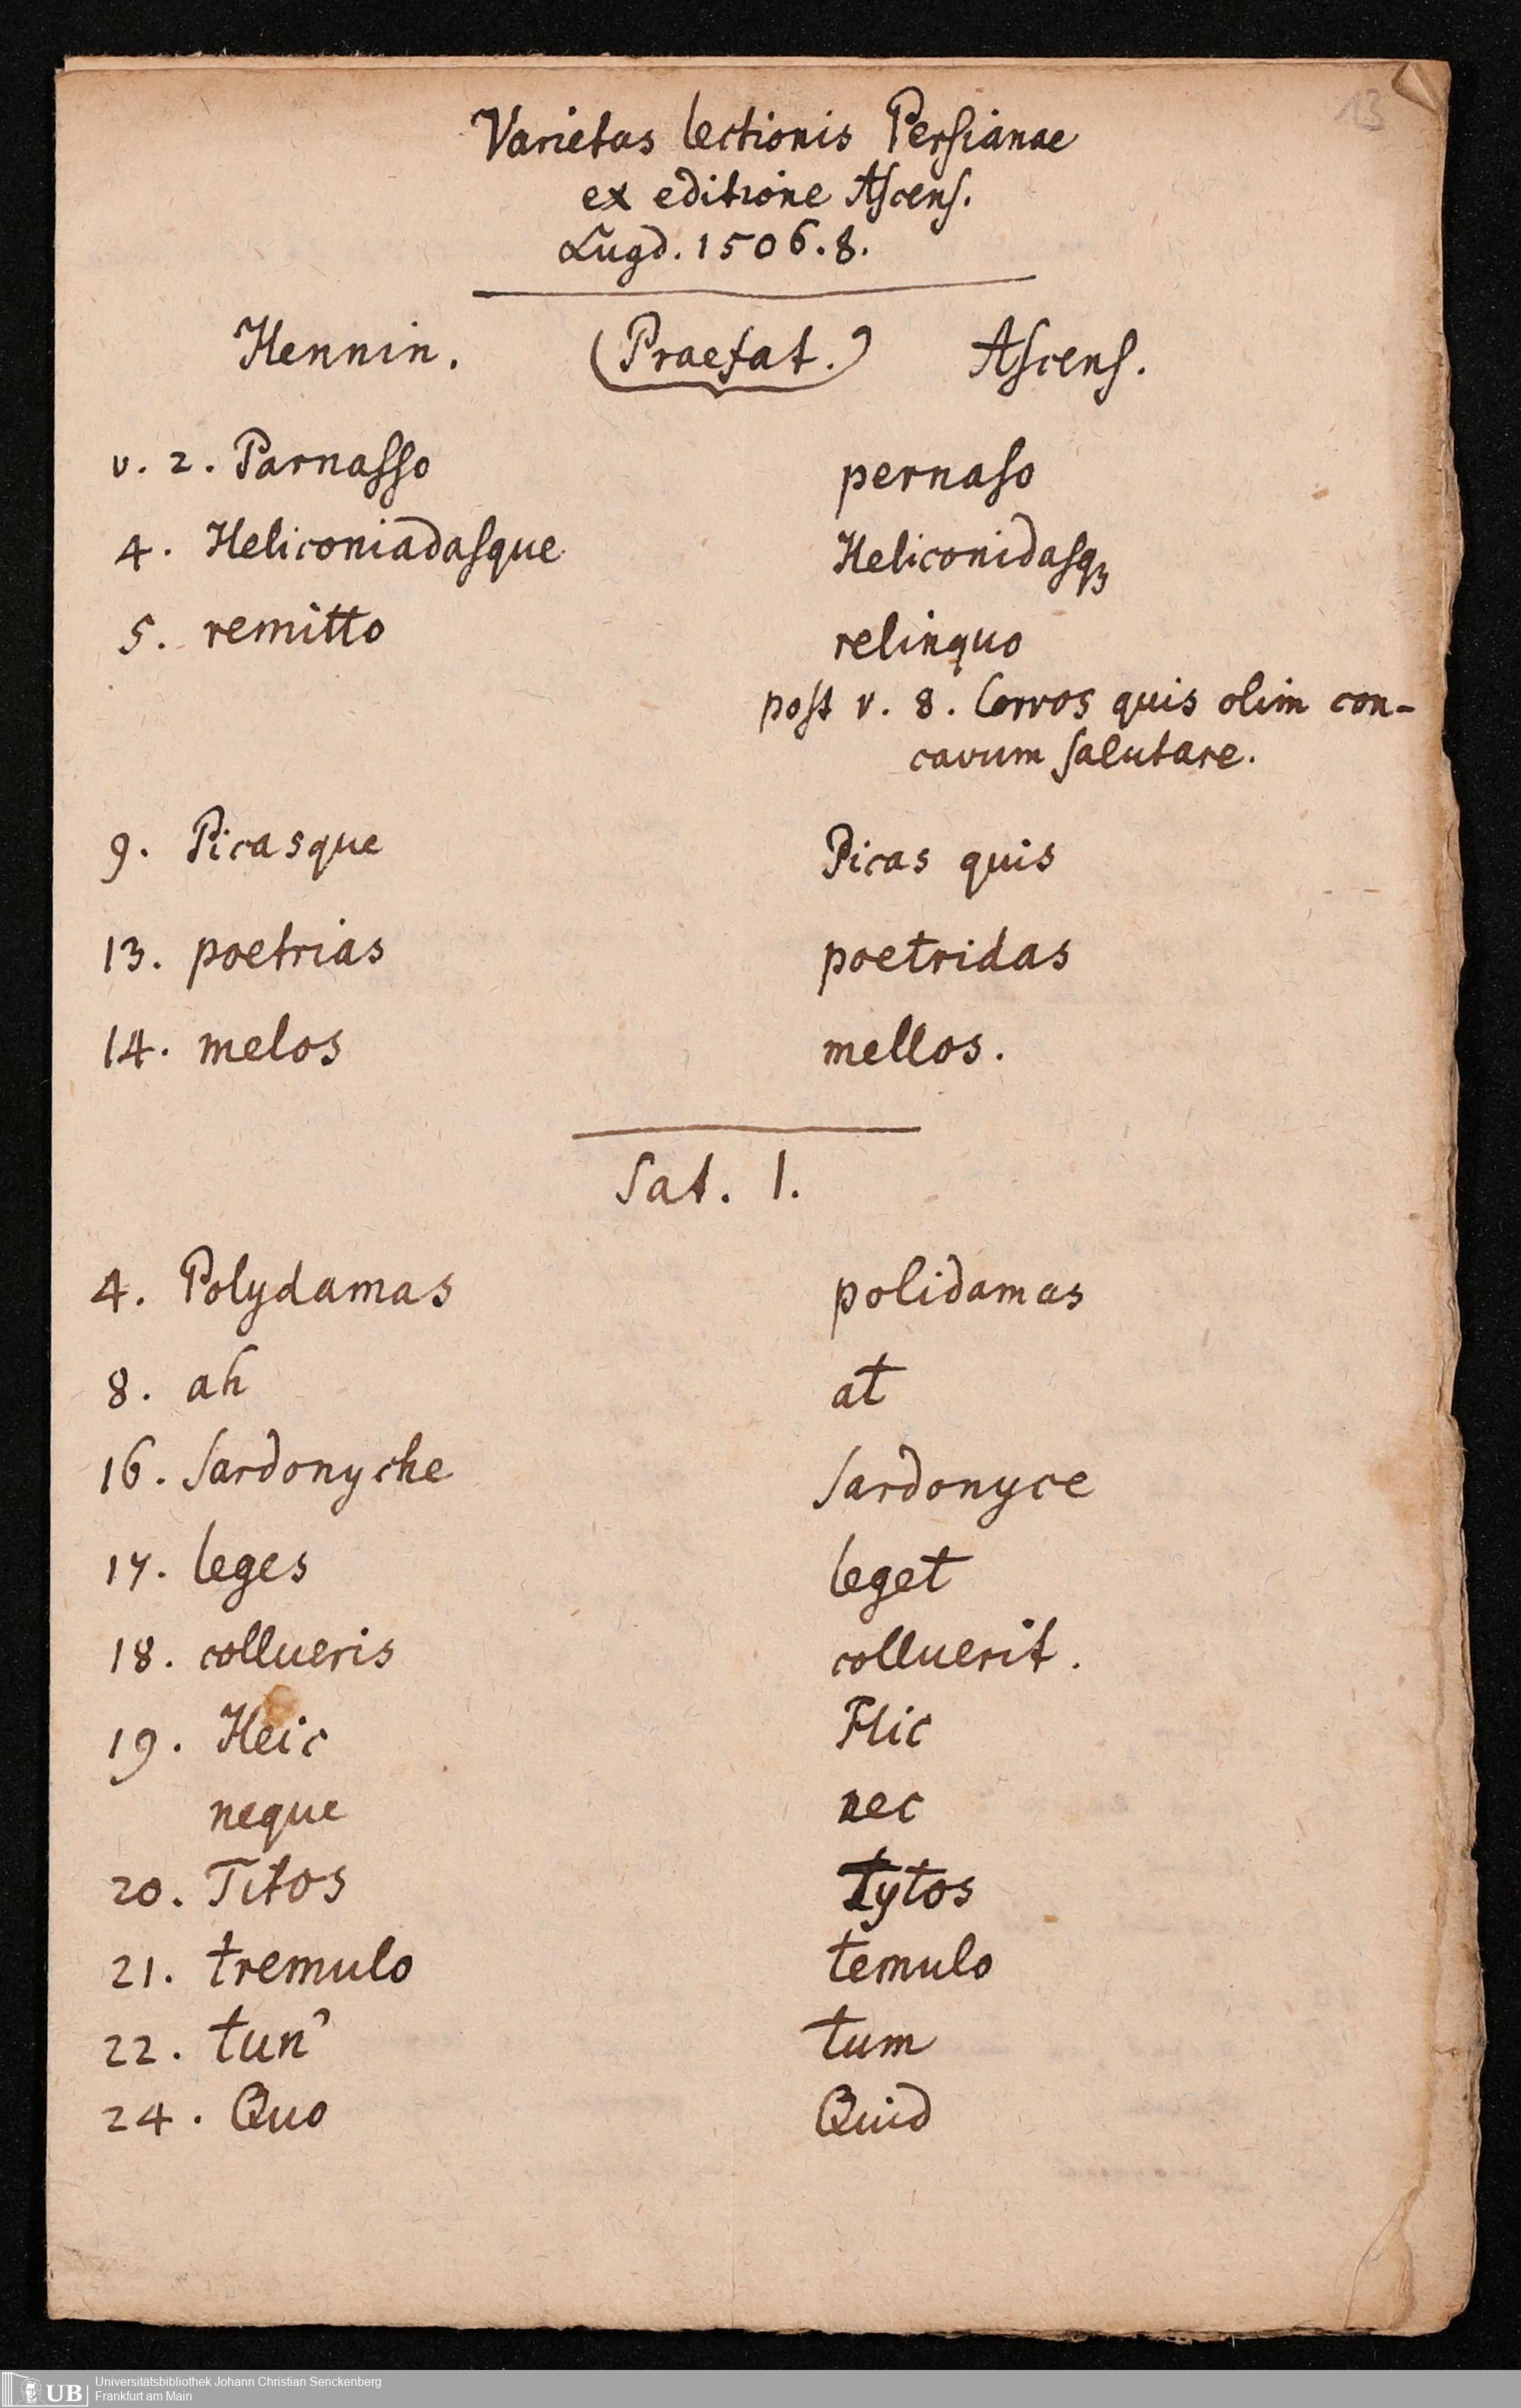 13
Varietas lectionis Persianae
ex editione Ascens.
Lugd. 1506. 8.
Hennin. (Praefat.) Ascens.
v. 2. Parnasso pernaso
4. Heliconiadasque Heliconidasqꝫ
5. remitto relinquo
post v. 8. Corvos quis olim con-
cavum salutare.
9. Picasque Picas quis
13. poetrias poetridas
14. melos mellos.
Sat. 1.
4. Polydamas polidamas
8. ah at
16. Sardonyche Sardonyce
17. leges leget
18. collueris colluerit.
19. Heic Hic
neque nec
20. Titos Tytos
21. tremulo temulo
22. tun' tum
24. Quo Quid
UB Universitätsbibliothek Johann Christian Senckenberg
Frankfurt am Main